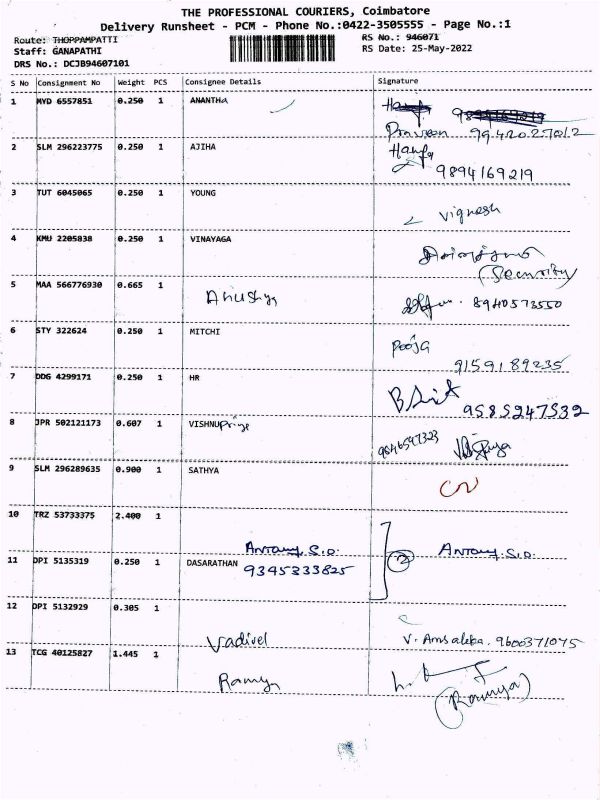 THE PROFESSIONAL COURIERS, Coimbatore
Delivery Runsheet - PCM - Phone No.:0422-3505555 - Page No.:1
Route: THOPPAMPATTI RS No.: 946071
Staff: GANAPATHI RS Date: 25-May-2022
DRS No.: DCJB94607101
S No Consignment No Weight PCS Consignee Details Signature
1 MYD 6557851 0.250 1 ANANTHA
Praveen 9942027012
2 SLM 296223775 0.250 1 AJIHA
9894169219
3 TUT 6045065 0.250 1 YOUNG
Vignesh
4 KMU 2205838 0.250 1 VINAYAGA
(Security)
5 MAA 566776930 0.665 1 Anushya 8940573550
6 STY 322624 0.250 1 MITCHI Pooja
9159189235
7 DDG 4299171 0.250 1 HR
9585247532
8 JPR 502121173 0.607 1 VISHNUpriya 9846597323
9 SLM 296289635 0.900 1 SATHYA
10 TRZ 53733375 2.400 1
Antony S.D. 2 Antony S.D.
11 DPI 5135319 0.250 1 DASARATHAN 9345333825
12 DPI 5132929 0.305 1
Vadivel V. Amsaleka. 9600371075
13 TCG 40125827 1.445 1
Ramya (Ramya)